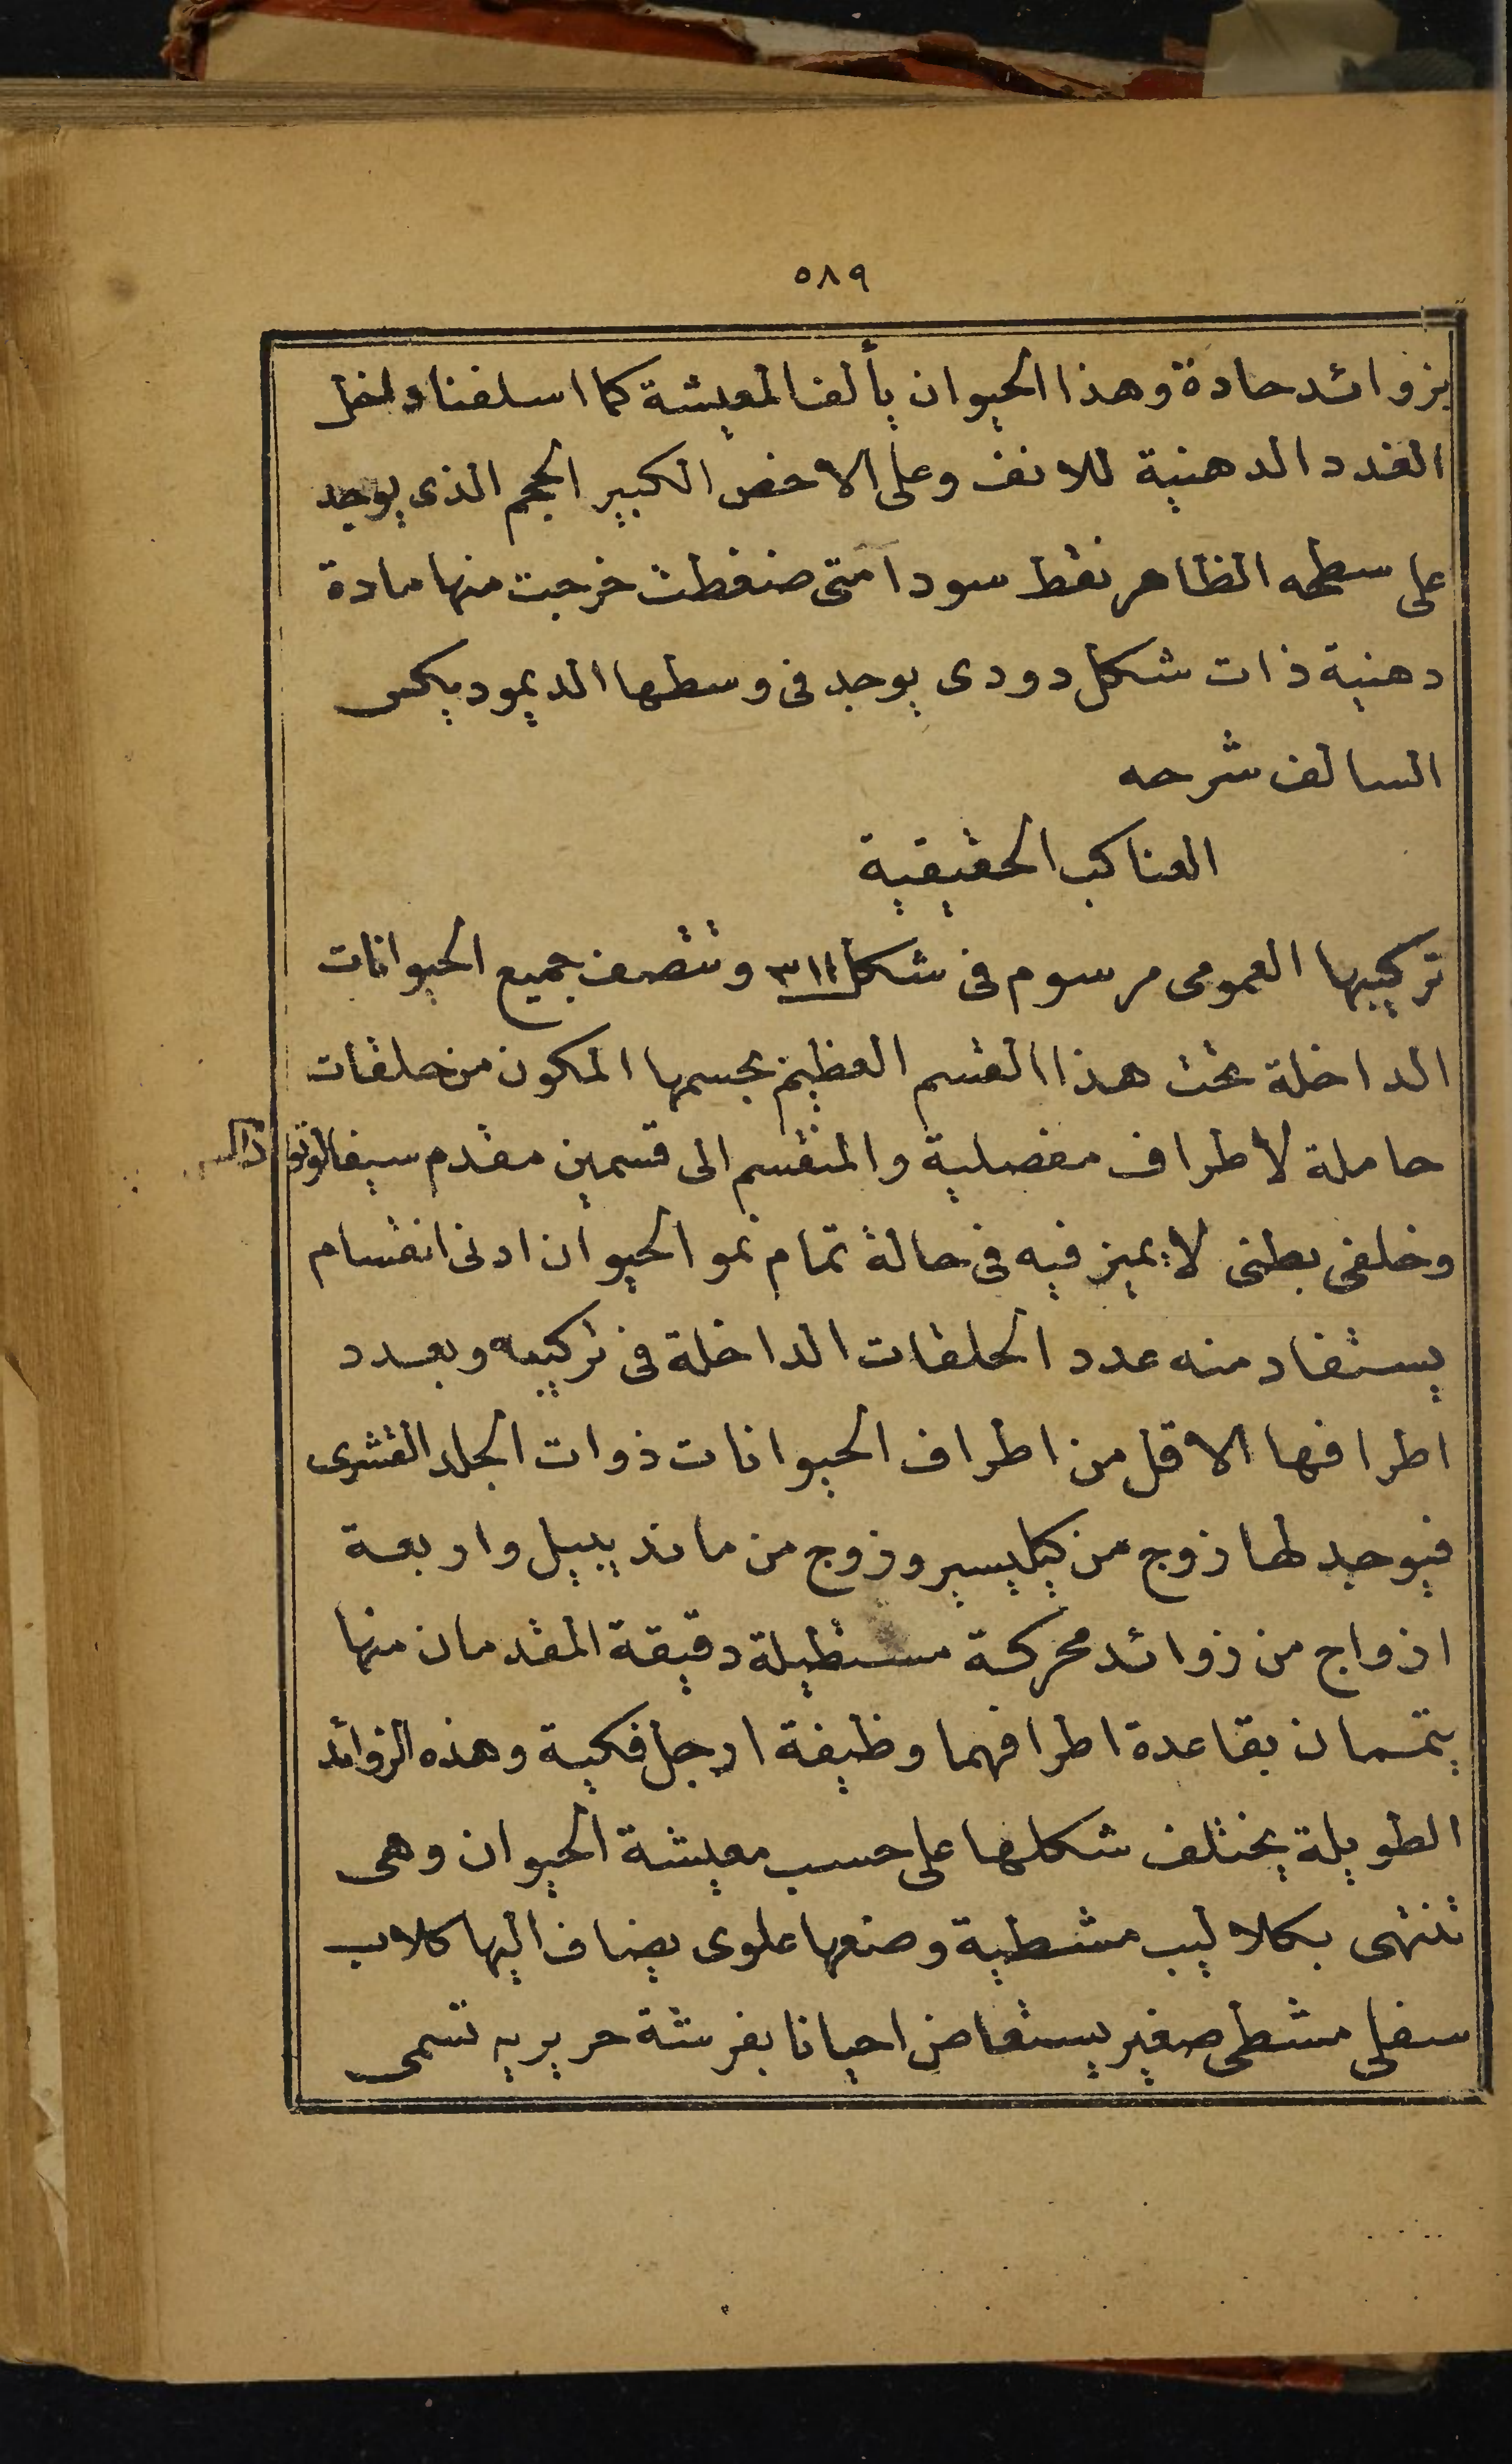 ٥٨٩
بزوائد حادة وهذا الحيوان يألف المعيشة كما اسلفنا داخل
الغدد الدهنية للانف وعلى الاخص الكبير الحجم الذى يوجد
على سطحه الظاهر نقط سودا متى ضغطت خرجت منها مادة
دهنية ذات شكل دودى يوجد فى وسطها الديموديكس
السالف شرحه
العناكب الحقيقية
تركيبها العمومى مرسوم فى شكل ٣١١ وتتصف جميع الحيوانات
الداخلة تحت هذا القسم العظيم بجسمها المكون من حلقات
حاملة لاطراف مفصلية والمنقسم الى قسمين مقدم سيفالوتوراكس
وخلفى بطنى لا يميز فيه فى حالة تمام نمو الحيوان ادنى انقسام
يستفاد منه عدد الحلقات الداخلة فى تركيبه وبعدد
اطرافها الاقل من اطراف الحيوانات ذوات الجلد القشرى
فيوجد لها زوج من كيليسير وزوج من مانديبيل واربعة
ازواج من زوائد محركة مستطيلة دقيقة المقدمان منها
يتممان بقاعدة اطرافهما وظيفة ارجل فكية وهذه الزوائد
الطويلة يختلف شكلها على حسب معيشة الحيوان وهى
تنتهى بكلاليب مشطية وضعها علوى يضاف اليها كلاب
سفلى مشطى صغير يستعاض احيانا بفرشة حريريه تسمى